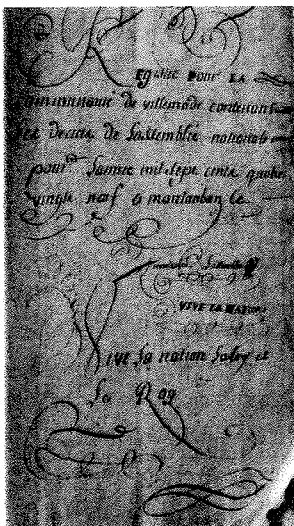 Egistre Pour LA
communauté de villemade contenant
Les decrets de Lassemblée nationale
pour Lannée mil sept cents quatre
vingts neuf a montauban le
VIVE LA NATION
VIVE La nation Laloy et
Le Roy